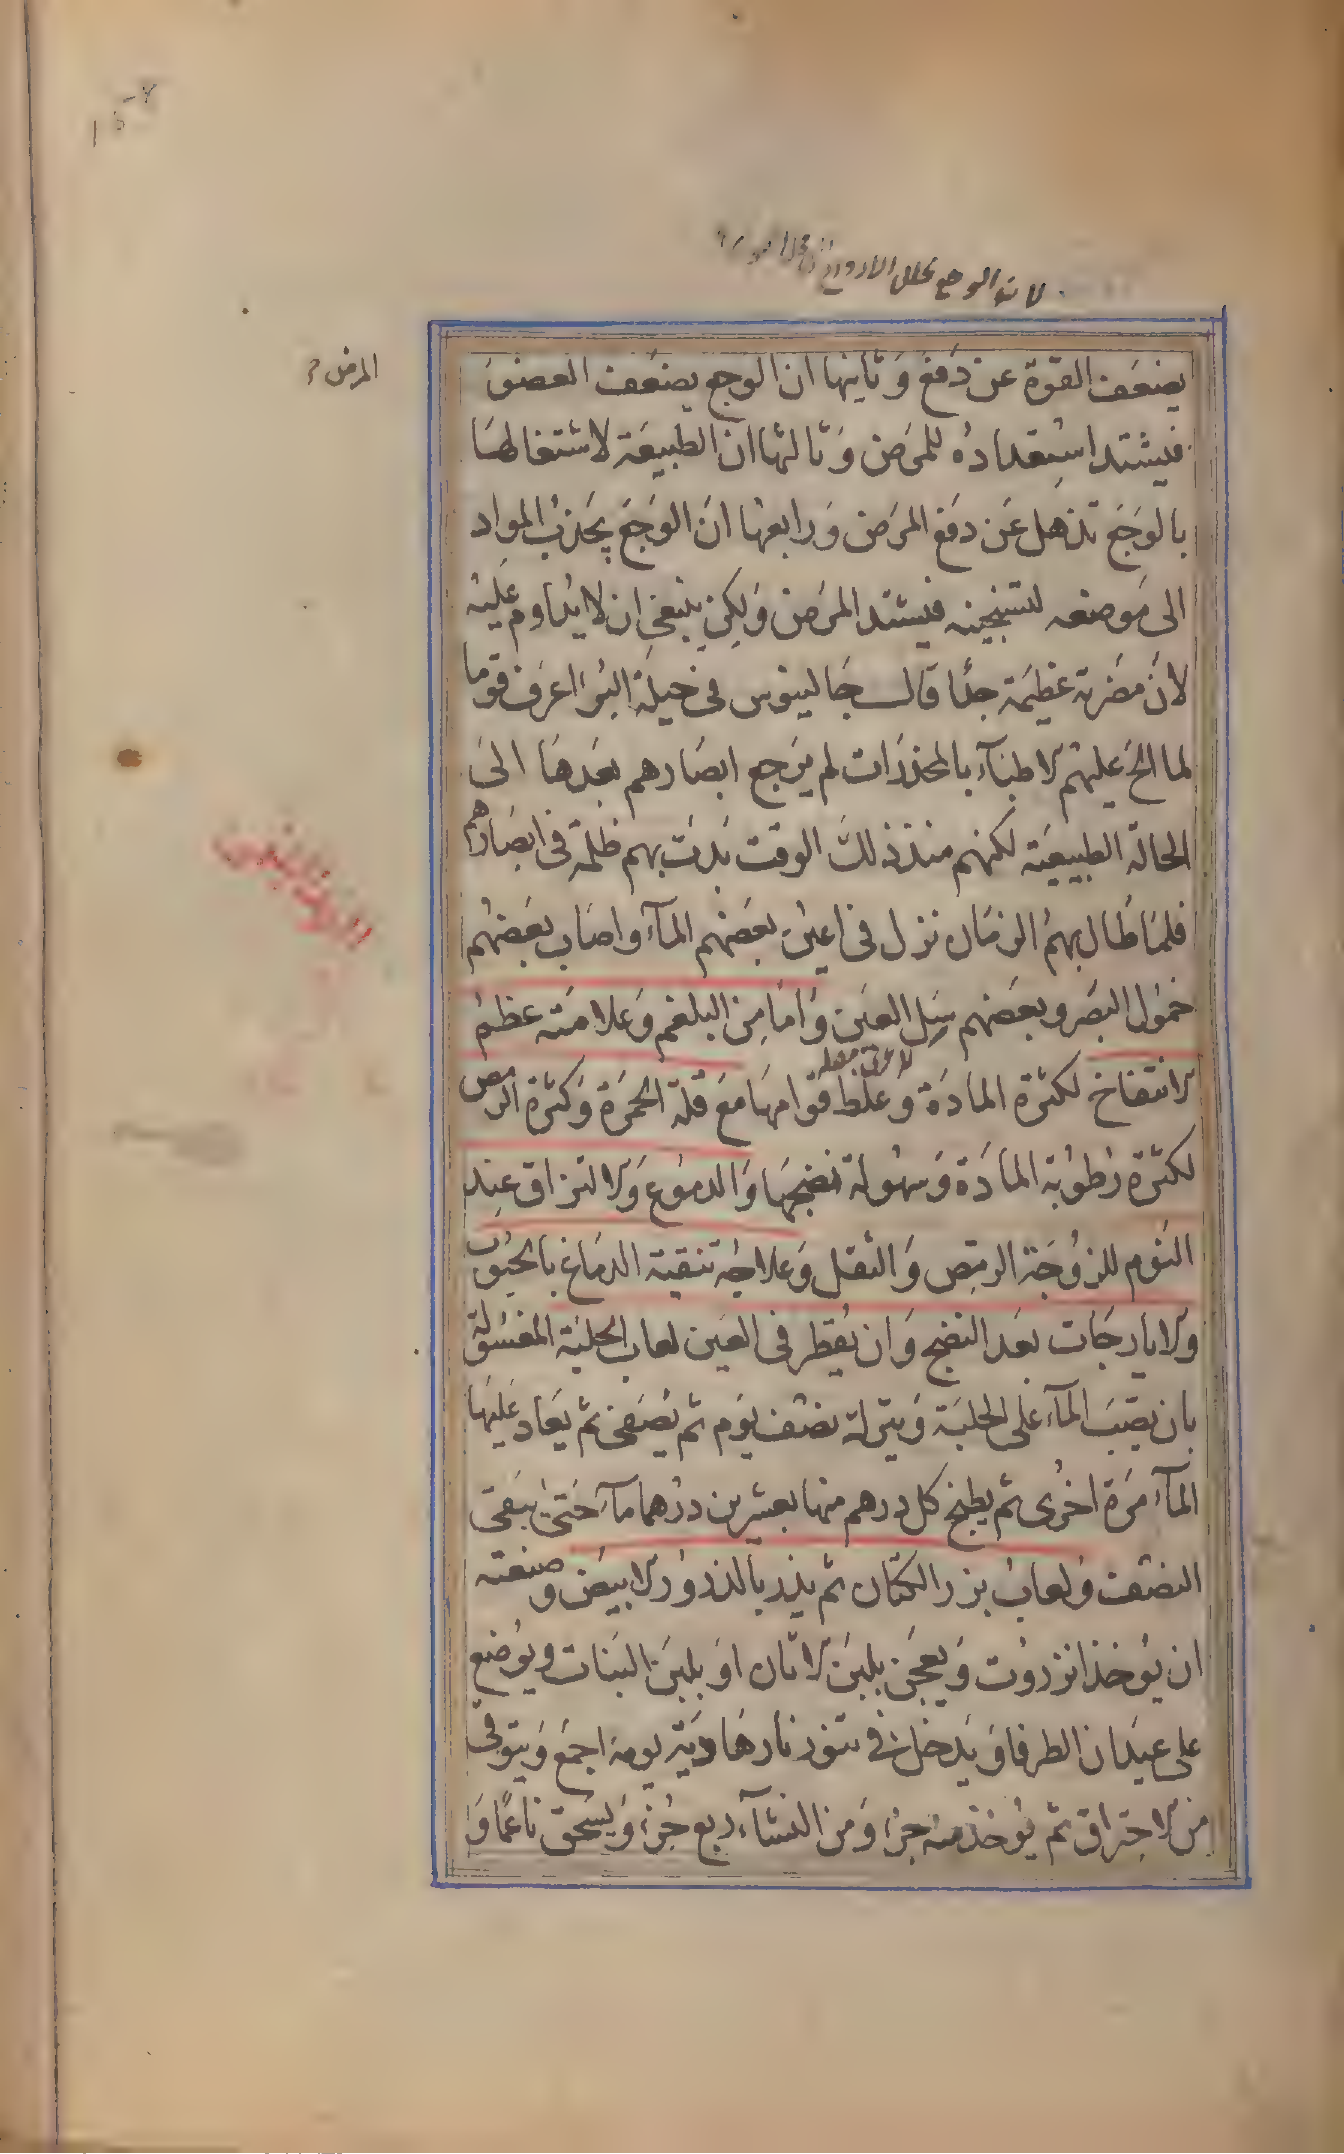 لان الوجع يحلل الارواح
المرض
يضعف القوة عن دفع وثانيها ان الوجع يضعف العضو
فيشتد استعداده للمرض وثالثها ان الطبيعة لاشتغالها
بالوجع تذهل عن دفع المرض ورابعها ان الوجع يجذب المواد
الى موضعه لتسخينه فيشتد المرض ولكن ينبغى ان لا يداوم عليه
لان مضرته عظيمة جدا قال جالينوس فى حيلة البرء اعرف قوما
لما الح عليهم الاطباء بالمخدرات لم يرجع ابصارهم بعدها الى
الحالة الطبيعية لكنهم منذ ذلك الوقت بدت بهم ظلمة فى ابصارهم
فلما طال بهم الزمان نزل فى اعين بعضهم الماء واصاب بعضهم
خمول البصر وبعضهم سل العين واما من البلغم وعلامته عظم
الانتفاخ لكثرة المادة وغلظ قوامها مع قلة الحمرة وكثرة الرمص
لكثرة رطوبة المادة وسهولة نضجها والدموع والالتزاق عند
النوم للزوجة الرمص والثقل وعلاجه تنقية الدماغ بالحبوب
والايارجات بعد النضج وان يقطر فى العين لعاب الحلبة المغسولة
بان يصب الماء على الحلبة ويترك نصف يوم ثم يصفى ثم يعاد عليها
الماء مرة اخرى ثم يطبخ كل درهم منها بعشرين درهما ماء حتى يبقى
النصف ولعاب بزر الكتان ثم يذر بالذرور الابيض وصنعته
ان يوخذ انزروت ويعجن بلبن الاتان او بلبن البنات ويوضع
على عيدان الطرفا ويدخل فى تنور نارها دية يومه اجمع ويتوقى
من الاحتراق ثم يوخذ منه جزء ومن النشاء ربع جزء ويسحق ناعما و